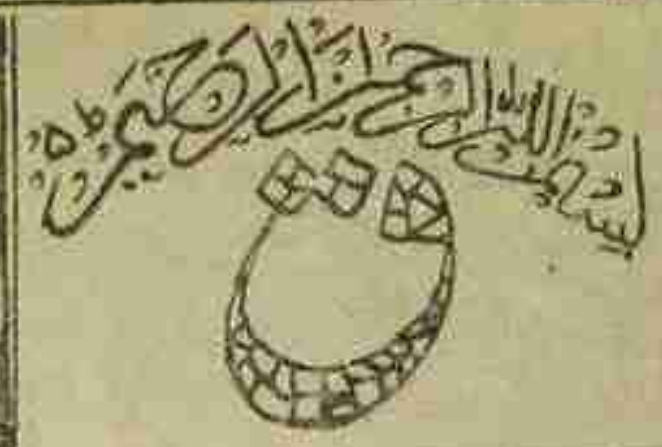 بسم الله الرحمن الرحيم
ق